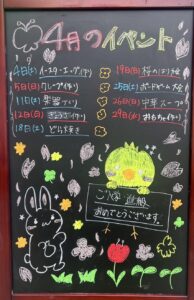 4月のイベント
4日(土) イースターエッグ作り
5日(日) クレープ作り
11日(土) 楽器作り
12日(日) ぎょうざ作り
18日(土) どら焼き
19日(日) 桜のはり絵
25日(土) ボードゲーム
26日(日) 中華スープ
29日(水) おもちゃ作り
ご入学 進級
おめでとうございます。